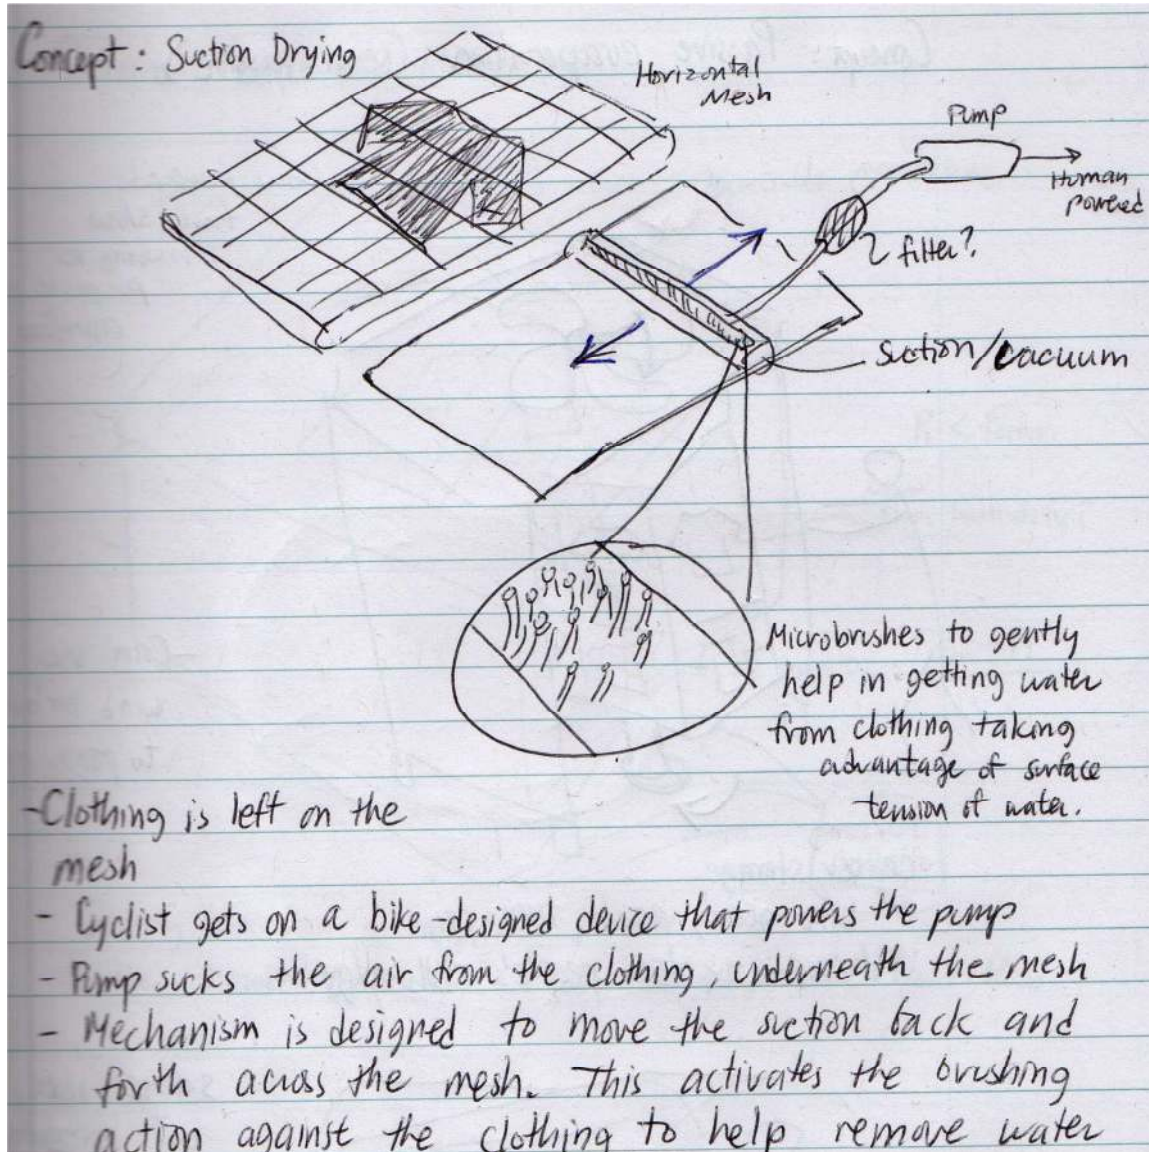 Concept: Suction Drying
Horizontal
Mesh
Pump
Human
powered
filter?
Suction/Vacuum
Microbrushes to gently
help in getting water
from clothing taking
advantage of surface
tension of water.
-Clothing is left on the
mesh
- Cyclist gets on a bike-designed device that powers the pump
- Pump sucks the air from the clothing, underneath the mesh
- Mechanism is designed to move the suction back and
forth across the mesh. This activates the brushing
action against the clothing to help remove water